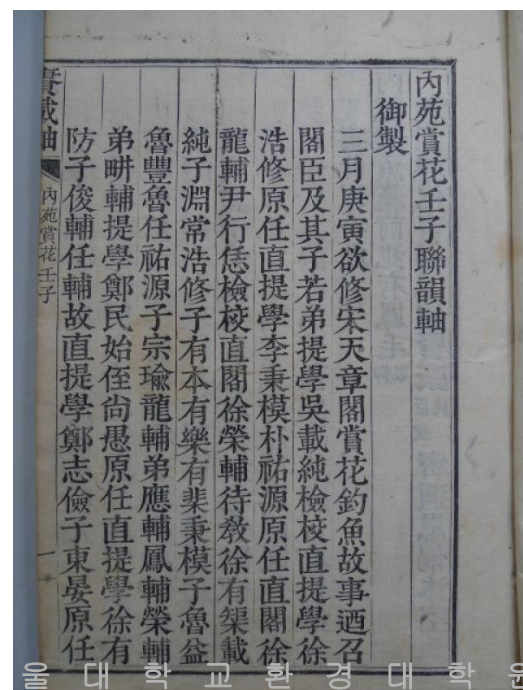 內苑賞花壬子聯韻軸
御製
三月庚寅欲修宋天章閣賞花釣魚故事迺召
閣臣及其子若弟提學吳載純檢校直提學徐
浩修原任直提學李秉模朴祐源原任直閣徐
龍輔尹行恁檢校直閣徐榮輔待敎徐有榘載
純子淵常浩修子有本有樂有棐秉模子魯益
魯豐魯任祐源子宗瑜龍輔弟應輔鳳輔榮輔
弟畊輔提學鄭民始侄尙愚原任直提學徐有
防子俊輔任輔故直提學鄭志儉子東晏原任
賡載軸
內苑賞花壬子
一
울대학교환경대학원